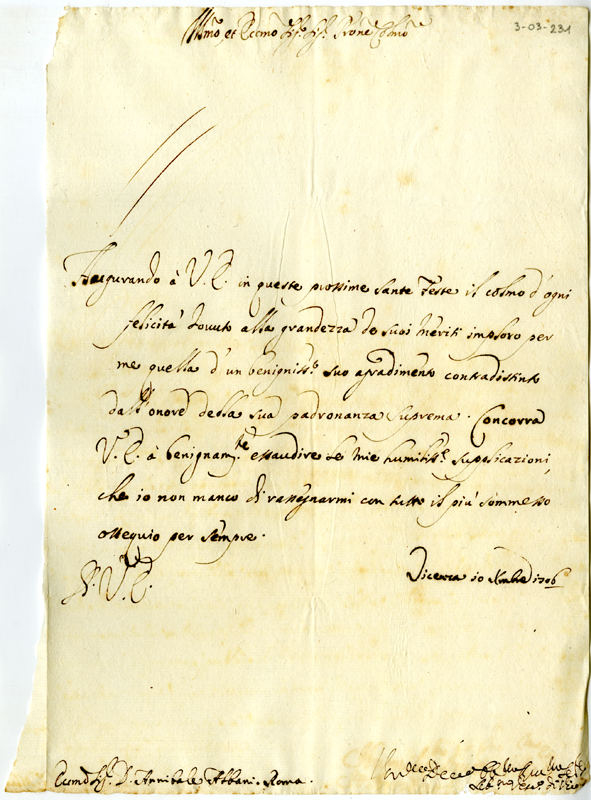 Illmo et Eccmo Sig.r Sig.r Prone Colmo
3-03-231
Augurando à V. E. in queste prossime Sante Feste il colmo d'ogni
felicità dovuto alla grandezza de suoi meriti imploro per
me quella d'un benigniss.o suo agradimento contradistinto
dall'onore della sua padronanza suprema. Concorra
V. E. à benignam.te essaudire le mie humiliss.e suplicazioni,
che io non manco di rassegnarmi con tutto il più sommesso
ossequio per sempre.
D. V. E.
Vicenza 10 Xmbre 1706
Eccmo Sig.r D. Annibale Albani. Roma.